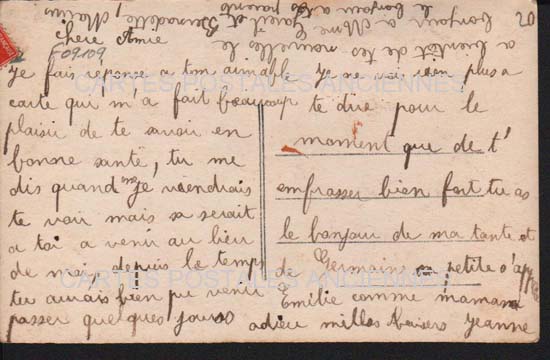 Chère Amie
Je fais reponse a ton aimable
carte qui m'a fait beaucoup
plaisir de te savoir en
bonne santé, tu me
dis quand esce je viendrais
te voir mais sa serait
a toi a venir au lieu
de moi, depuis le temps
tu aurais bien pu venir
passer quelques jours
Je ne vois rien plus a
te dire pour le
moment que de t'
embrasser bien fort tu as
le bonjour de ma tante et
de Germaine sa petite s'app
Emilie comme maman
adieu milles baisers Jeanne
a bientot de tes nouvelles le
bonjour a Mme Gareil et Bernadette, Martin
le bonjour a tes parents
20
F09109
CARTES POSTALES ANCIENNES
CARTES POSTALES ANCIENNES